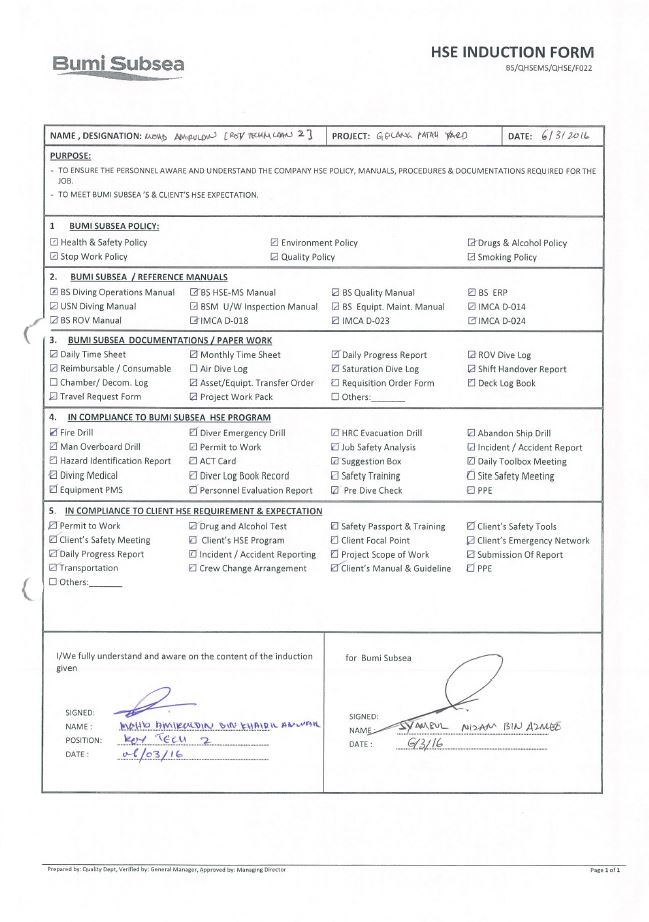 Bumi Subsea
HSE INDUCTION FORM
BS/QHSEMS/QHSE/F022
NAME , DESIGNATION: MOHD AMIRULDIN [ROV TECHNICIAN 2] PROJECT: GELANG PATAH YARD DATE: 6/3/2016
PURPOSE:
- TO ENSURE THE PERSONNEL AWARE AND UNDERSTAND THE COMPANY HSE POLICY, MANUALS, PROCEDURES & DOCUMENTATIONS REQUIRED FOR THE
JOB.
- TO MEET BUMI SUBSEA 'S & CLIENT'S HSE EXPECTATION.
1 BUMI SUBSEA POLICY:
☑ Health & Safety Policy ☑ Environment Policy ☑ Drugs & Alcohol Policy
☑ Stop Work Policy ☑ Quality Policy ☑ Smoking Policy
2. BUMI SUBSEA / REFERENCE MANUALS
☑ BS Diving Operations Manual ☑ BS HSE-MS Manual ☑ BS Quality Manual ☑ BS ERP
☑ USN Diving Manual ☑ BSM U/W Inspection Manual ☑ BS Equipt. Maint. Manual ☑ IMCA D-014
☑ BS ROV Manual ☑ IMCA D-018 ☑ IMCA D-023 ☑ IMCA D-024
3. BUMI SUBSEA DOCUMENTATIONS / PAPER WORK
☑ Daily Time Sheet ☑ Monthly Time Sheet ☑ Daily Progress Report ☑ ROV Dive Log
☑ Reimbursable / Consumable ☐ Air Dive Log ☑ Saturation Dive Log ☑ Shift Handover Report
☐ Chamber/ Decom. Log ☑ Asset/Equipt. Transfer Order ☐ Requisition Order Form ☑ Deck Log Book
☑ Travel Request Form ☑ Project Work Pack ☐ Others:______
4. IN COMPLIANCE TO BUMI SUBSEA HSE PROGRAM
☑ Fire Drill ☑ Diver Emergency Drill ☑ HRC Evacuation Drill ☑ Abandon Ship Drill
☑ Man Overboard Drill ☑ Permit to Work ☑ Job Safety Analysis ☑ Incident / Accident Report
☑ Hazard Identification Report ☑ ACT Card ☑ Suggestion Box ☑ Daily Toolbox Meeting
☑ Diving Medical ☑ Diver Log Book Record ☑ Safety Training ☑ Site Safety Meeting
☑ Equipment PMS ☑ Personnel Evaluation Report ☑ Pre Dive Check ☑ PPE
5. IN COMPLIANCE TO CLIENT HSE REQUIREMENT & EXPECTATION
☑ Permit to Work ☑ Drug and Alcohol Test ☑ Safety Passport & Training ☑ Client's Safety Tools
☑ Client's Safety Meeting ☑ Client's HSE Program ☑ Client Focal Point ☑ Client's Emergency Network
☑ Daily Progress Report ☑ Incident / Accident Reporting ☑ Project Scope of Work ☑ Submission Of Report
☑ Transportation ☑ Crew Change Arrangement ☑ Client's Manual & Guideline ☑ PPE
☐ Others:______
I/We fully understand and aware on the content of the induction
given
SIGNED:
NAME : MOHD AMIRULDIN BIN KHAIRIL ANUAR
POSITION: ROV TECH 2
DATE : 06/03/16
for Bumi Subsea
SIGNED:
NAME: SYAMBUL NIZAM BIN AZMEE
DATE : 6/3/16
Prepared by: Quality Dept, Verified by: General Manager, Approved by: Managing Director
Page 1 of 1